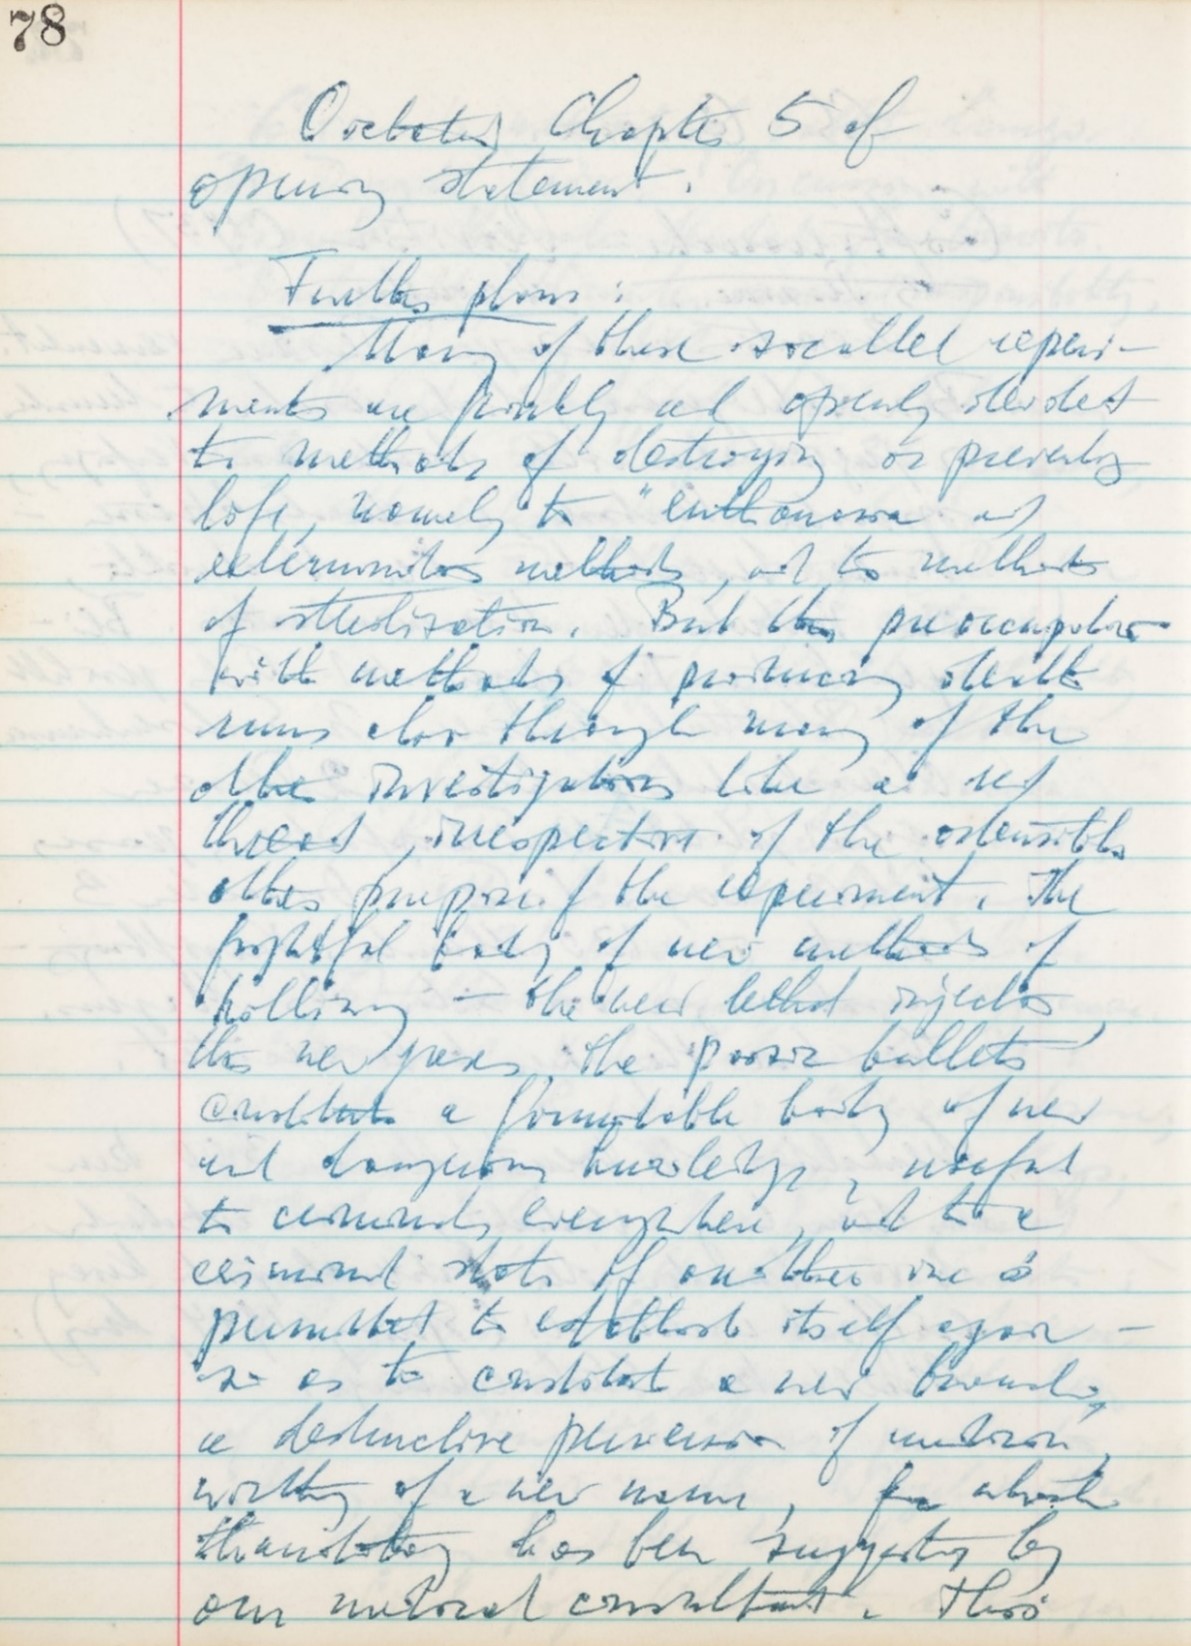 78
Chapter 5 of
opening statement.
Further plans:
Many of these socalled experi-
ments are frankly and openly devoted
to methods of destroying or preventing
life, namely to "euthanasia and
extermination methods, and to methods
of sterilization. But this preoccupation
with methods of producing death
runs also through many of the
other investigations like a red
thread, irrespective of the ostensible
other purpose of the experiment. The
frightful body of new methods of
killing — the new lethal injection,
the new gases, the poison bullets
constitute a formidable body of new
and dangerous knowledge, useful
to criminals everywhere, and to a
criminal state if another one is
permitted to establish itself again —
so as to constitute a new branch,
a destructive perversion of medicine,
worthy of a new name, for which
thanatology has been suggested by
our medical consultant. This